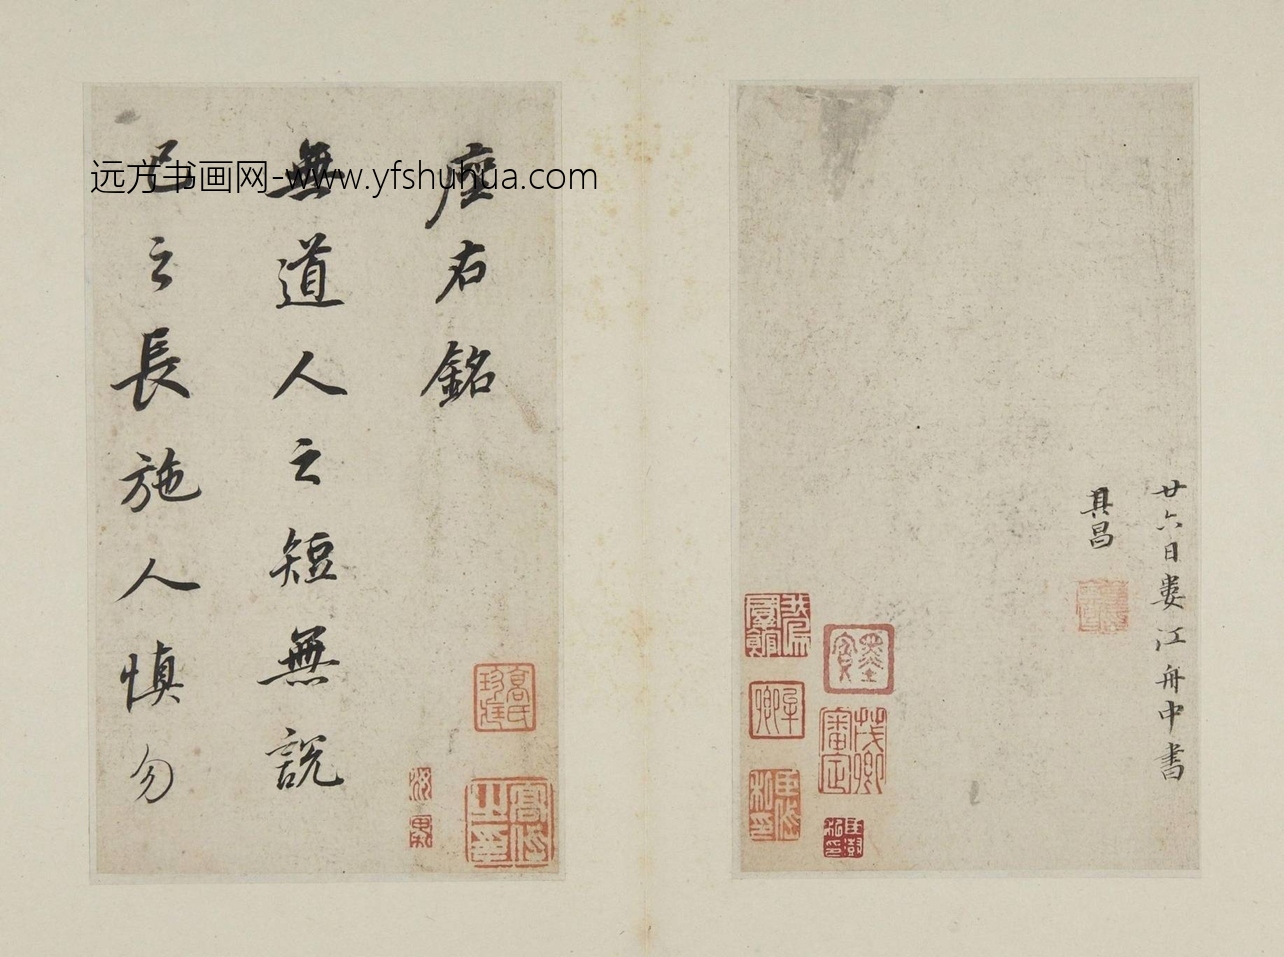 廿六日婁江舟中書
其昌
墨寶
座右銘
無道人之短無說
己之長施人慎勿
远方书画网-www.yfshuhua.com